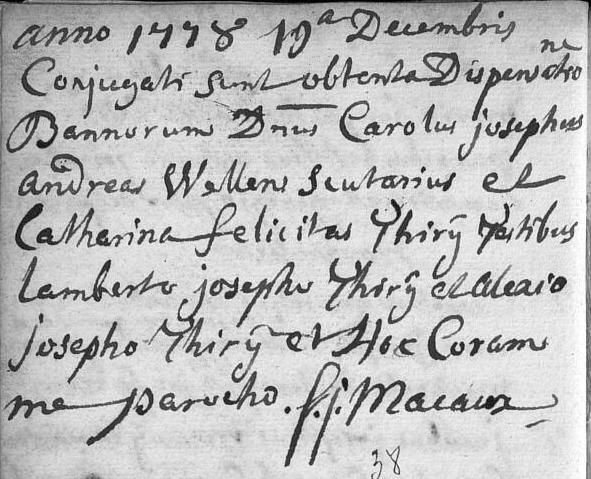 anno 1778 19a Decembris
Conjugati sunt obtenta Dispensatione
Bannorum Dnus Carolus josephus
andreas Wellens Scutarius et
Catharina felicitas Thirÿ Testibus
lamberto josepho Thirÿ et alexio
josepho Thirÿ et Hoc Coram
me parocho. f.j. Macaux
38